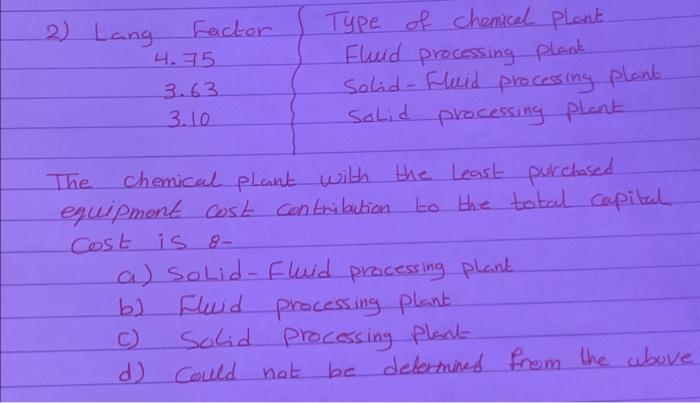 2) Lang Factor Type of chemical plant
4.75 Fluid processing plant
3.63 Solid-Fluid processing plant
3.10 Solid processing plant
The chemical plant with the least purchased
equipment cost contribution to the total capital
Cost is 8-
a) Solid-Fluid processing plant
b) Fluid processing plant
c) Solid Processing Plant
d) Could not be determined from the above